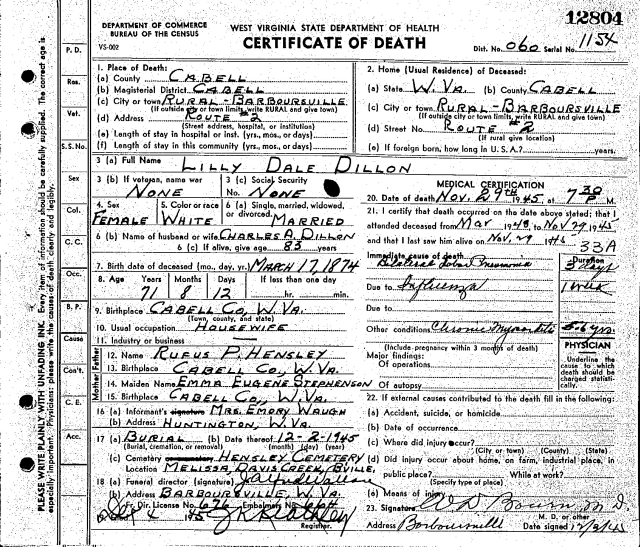 12804
DEPARTMENT OF COMMERCE
BUREAU OF THE CENSUS
VS-002
WEST VIRGINIA STATE DEPARTMENT OF HEALTH
CERTIFICATE OF DEATH
Dist. No. 060 Serial No. 1154
PLEASE WRITE PLAINLY WITH UNFADING INK. Every item of information should be carefully supplied. The correct age is
especially important. Physicians: please write the causes of death clearly and legibly.
P. D.
Res.
Vet.
S.S.No.
Sex
Col.
C. C.
Age
Occ.
B. P.
Cause
Con't.
C. E.
Acc.
1. Place of Death:
(a) County CABELL
(b) Magisterial District CABELL
(c) City or town RURAL-BARBOURSVILLE
(If outside city or town limits, write RURAL and give town)
(d) Address ROUTE #2
(Street address, hospital, or institution)
(e) Length of stay in hospital or inst. (yrs., mos., or days)
(f) Length of stay in this community (yrs., mos., or days)
2. Home (Usual Residence) of Deceased:
(a) State W. VA. (b) County CABELL
(c) City or town RURAL-BARBOURSVILLE
(If outside city or town limits, write RURAL and give town)
(d) Street No. ROUTE #2
(If rural give location)
(e) If foreign born, how long in U. S. A.? years.
3 (a) Full Name LILLY DALE DILLON
3 (b) If veteran, name war NONE
3 (c) Social Security No. NONE
4. Sex FEMALE
5. Color or race WHITE
6 (a) Single, married, widowed, or divorced. MARRIED
6 (b) Name of husband or wife CHARLES A. DILLON
6 (c) If alive, give age 83 years
7. Birth date of deceased (mo., day, yr.) MARCH 17, 1874
8. Age Years 71 Months 8 Days 12 If less than one day hr. min.
9. Birthplace CABELL CO., W. VA.
(Town, county, and state)
10. Usual occupation HOUSEWIFE
11. Industry or business
Father
12. Name RUFUS P. HENSLEY
13. Birthplace CABELL CO., W. VA.
Mother
14. Maiden Name EMMA EUGENE STEPHENSON
15. Birthplace CABELL CO., W. VA.
16 (a) Informant's signature MRS. EMORY WAUGH
(b) Address HUNTINGTON, W. VA.
17 (a) BURIAL (b) Date thereof 12-2-1945
(Burial, cremation, or removal) (month) (day) (year)
(c) Cemetery HENSLEY CEMETERY
Location MELISSA, DAVIS CREEK, B'VILLE,
18 (a) Funeral director (signature)
(b) Address BARBOURSVILLE, W. VA.
Fr. Dir. License No. 676 Embalmers No.
Registrar.
MEDICAL CERTIFICATION
20. Date of death NOV. 29TH 1945 at 7 30 P. M.
21. I certify that death occurred on the date above stated; that I
attended deceased from Mar 1943 to Nov 29 1945
and that I last saw him alive on Nov. 29 1945 33A
Immediate cause of death Duration
Bilateral Lobar Pneumonia 3 days
Due to Influenza 1 week
Due to
Other conditions Chronic Myocarditis 5-6 yrs.
(Include pregnancy within 3 months of death)
Major findings:
Of operations
Of autopsy
PHYSICIAN
Underline the cause to which death should be charged statistically.
22. If external causes contributed to death fill in the following:
(a) Accident, suicide, or homicide
(b) Date of occurrence
(c) Where did injury occur?
(City or town) (County) (State)
(d) Did injury occur about home, on farm, industrial place, in
public place? While at work?
(Specify type of place)
(e) Means of injury
23. Signature W D Bourn M D.
M. D. or other
Address Barboursville Date signed 12/2/45